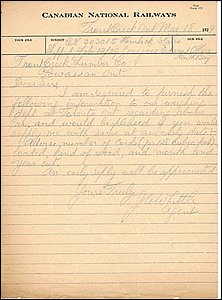 CANADIAN NATIONAL RAILWAYS
Trout Creek Ont Mar 18 192
YOUR FILE OUR FILE
CN Hemlock Slabs
North Bay
Trout Creek Lumber Co.
Powassan Ont
Dear Sirs
I am required to furnish the
following information to our weighing
dept at Toronto Ont regarding above
Car, and would be pleased if you would
supply me with same at an early date
Advise number of Cords
loaded, kind of wood, and month and
year cut.
An early reply will be appreciated
Yours Truly
Little
Agent